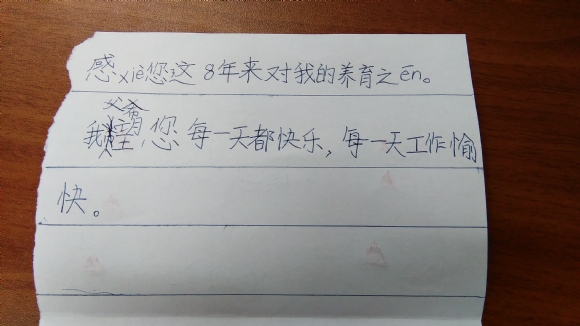 感xiè您这8年来对我的养育之ēn。
我希望您每一天都快乐，每一天工作愉
快。